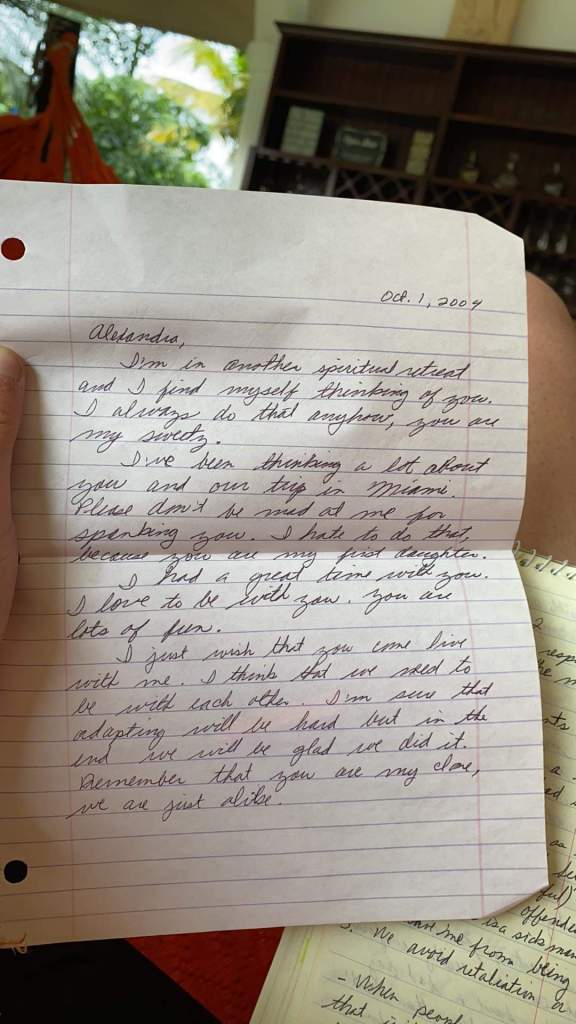 Oct. 1, 2004
Alexandra,
I'm in another spiritual retreat
and I find myself thinking of you.
I always do that anyhow, you are
my sweety.
I've been thinking a lot about
you and our trip in Miami.
Please don't be mad at me for
spanking you. I hate to do that,
because you are my first daughter.
I had a great time with you.
I love to be with you. You are
lots of fun.
I just wish that you come live
with me. I think that we need to
be with each other. I'm sure that
adapting will be hard but in the
end we will be glad we did it.
Remember that you are my clone,
we are just alike.
2
resp
offende
is a sick man
me from being
3. We avoid retaliation or
- When people
that